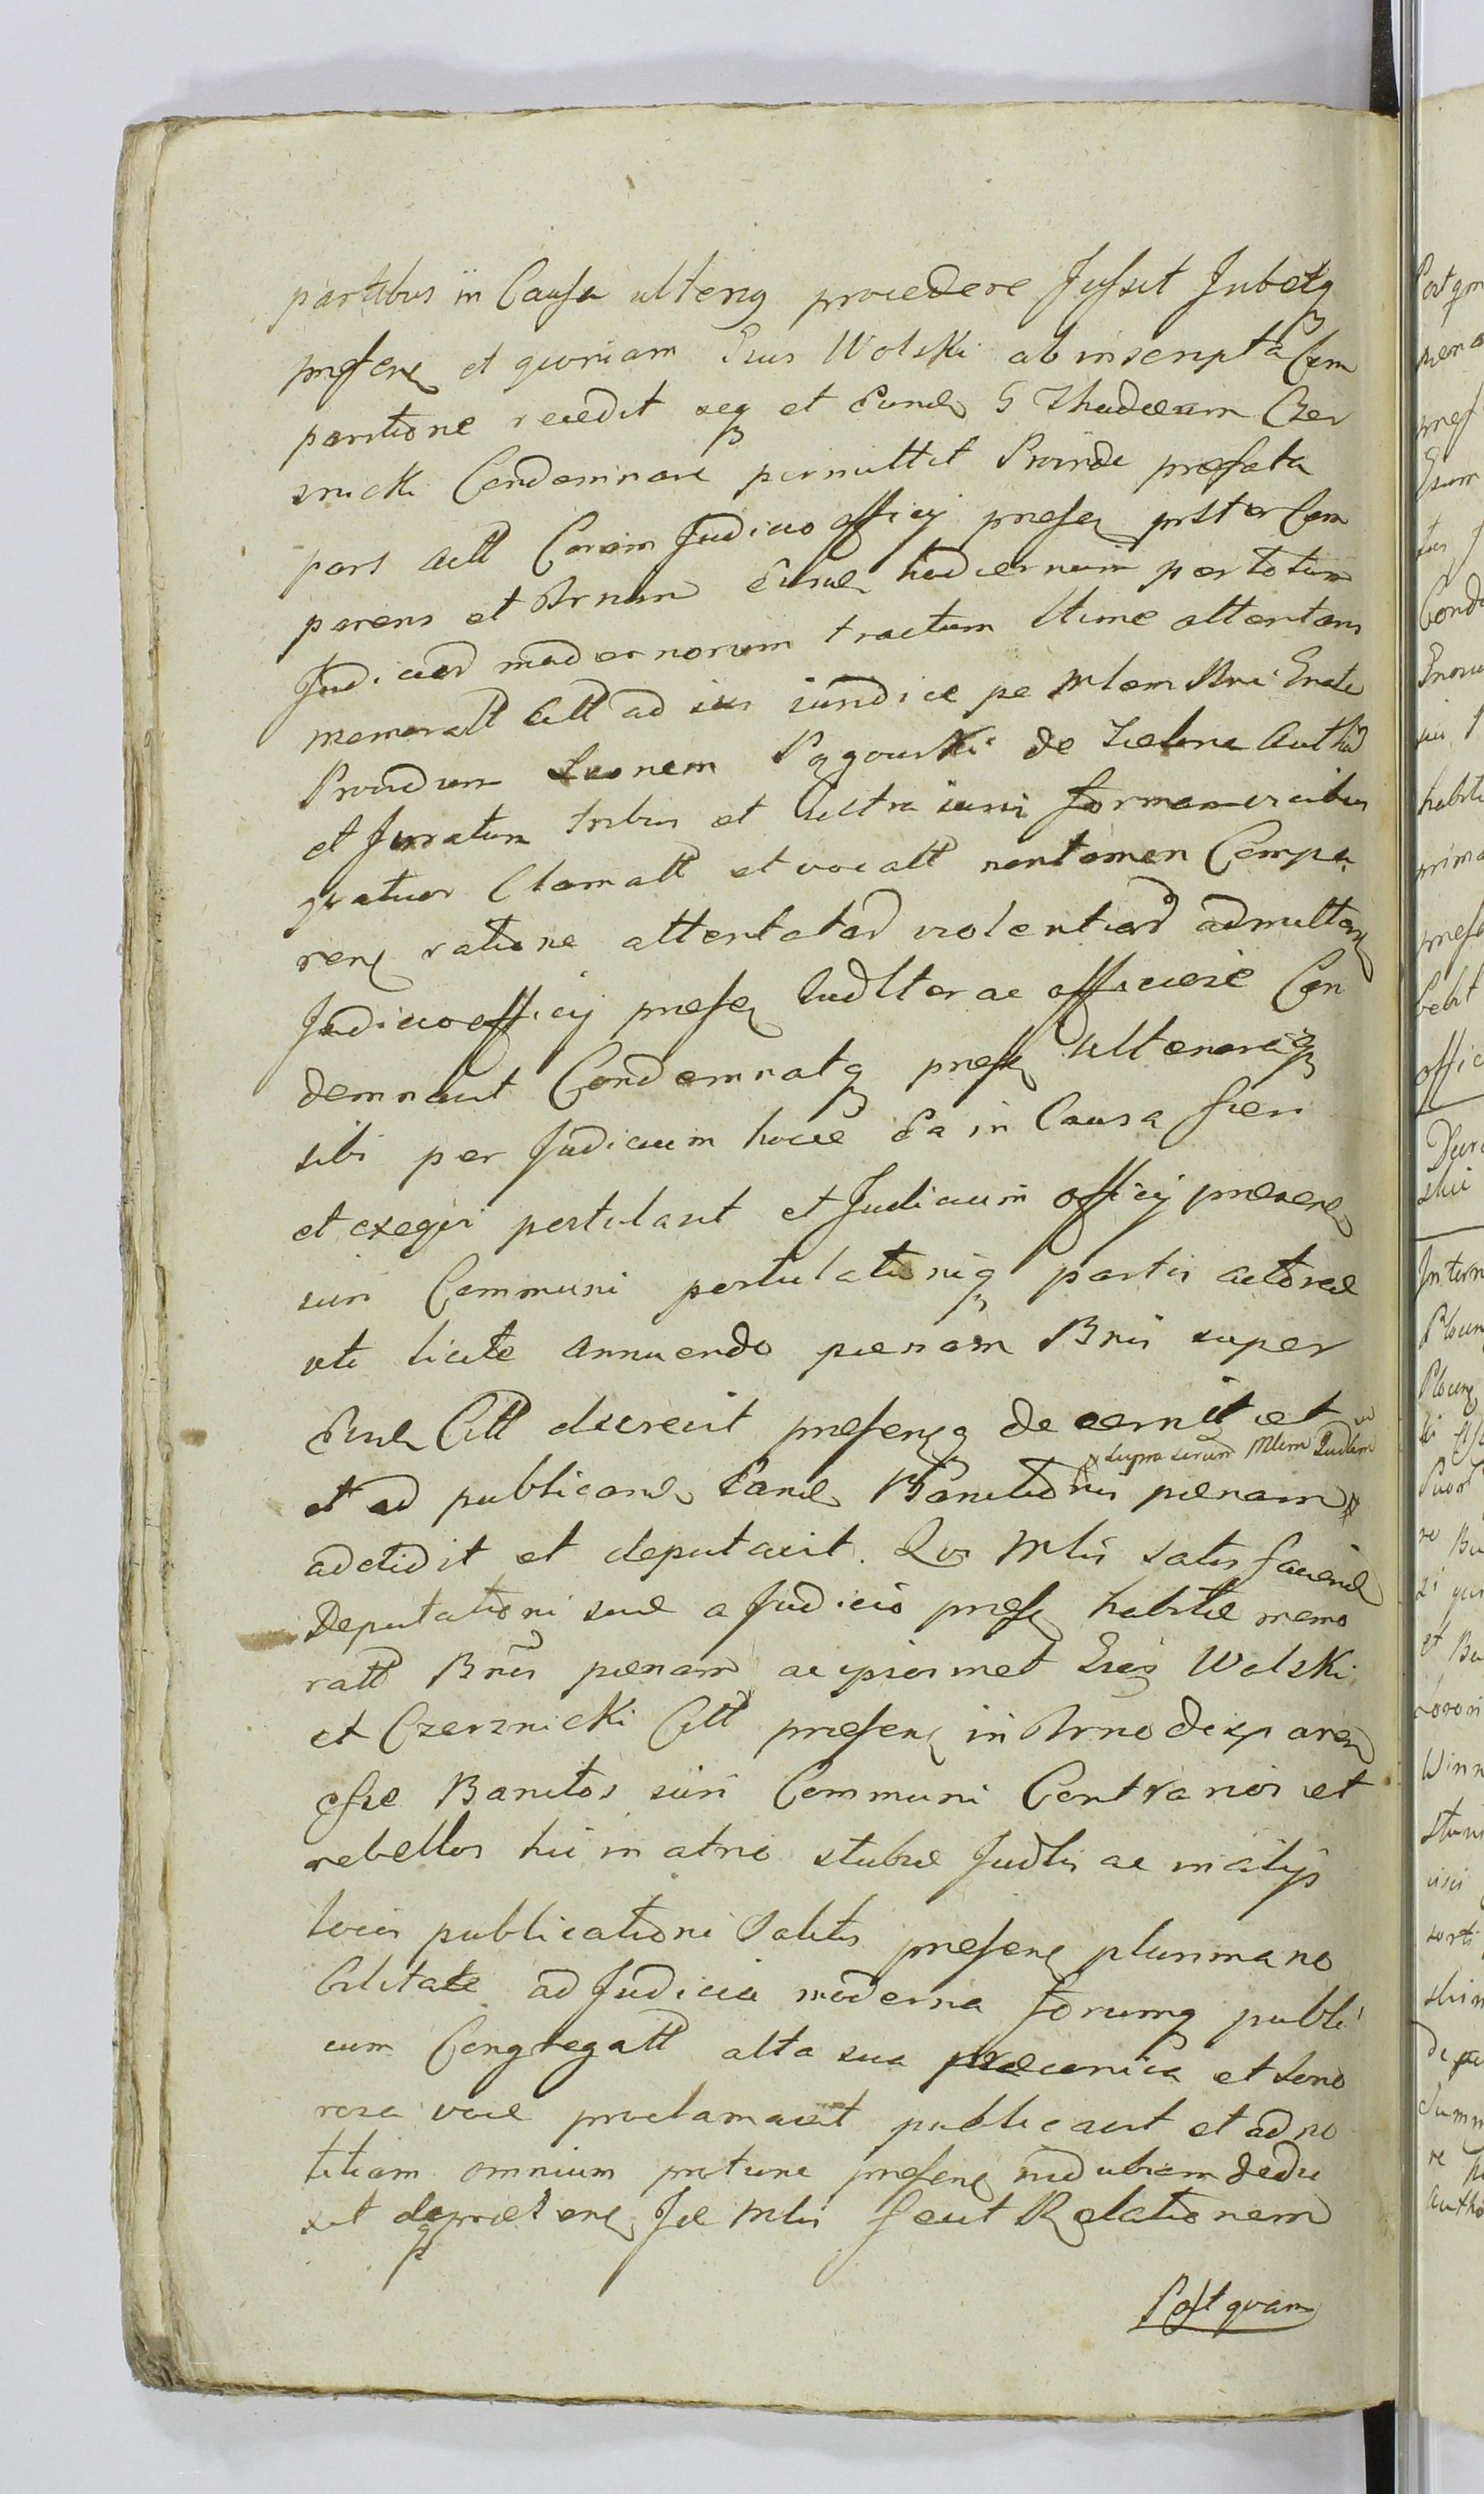 partibus in Causa ulterig procedere Jussit Jubetq
presen et quoniam Grus Wolski ab inscripta Com
paritione recedit seq et Eund G Thadeum Czer
znicki Condemnare permittit Proinde prefata
pars actt Coram Judicio officij presen prster Com
parens et Trnum Eund hodiernum per totum
Judicior modernorum tractum ltime attentans
memoratt Citt ad ius iurdice pe Mlem Rni Grale
Providum Leonem Pągowski de Zielona Authd
et Juratum tribus et ultra iuris formam vicibus
quatuor Clamatt et vocatt non tamen Compa
ren ratione attentatar violentiar admultam
Judicio officij presen Judlter ac officiose Con
demnavit Condemnatq presen ulterioraq
sibi per Judicium hocce Ea in Causa fieri
et exequi postulavit et Judicium officij presens
iuri Communi postulationiq partis actoreae
uti licite annuendo paenam Bnis super
Eund Citt decrevit presenq decernit et
et ad publicand Eand Banitionis paenam # # supra scrum Mlem Judlem
addidit et deputavit. Qui Mlis satis faciend
Deputationi suae a Judicio presen habitae memo
ratt Bnis paenam ac ipsosmet Gros Wolski
et Czerznicki Citt presens in Trno dispar en
esse Banitos iuri Communi Contrarios et
rebelles hic in atrio stubae Judlis ac in alijs
locis publicationi Solitis presens plurima no
bilitate ad Judicia moderna forumq publi
cum Congregatt alta sua praeconica et sono
rosa voce proclamavit publicavit et ad no
titiam omnium pro tunc presens indubiam dedu
xit deq praeviens Je Mlis fecit Relationem
Postquam